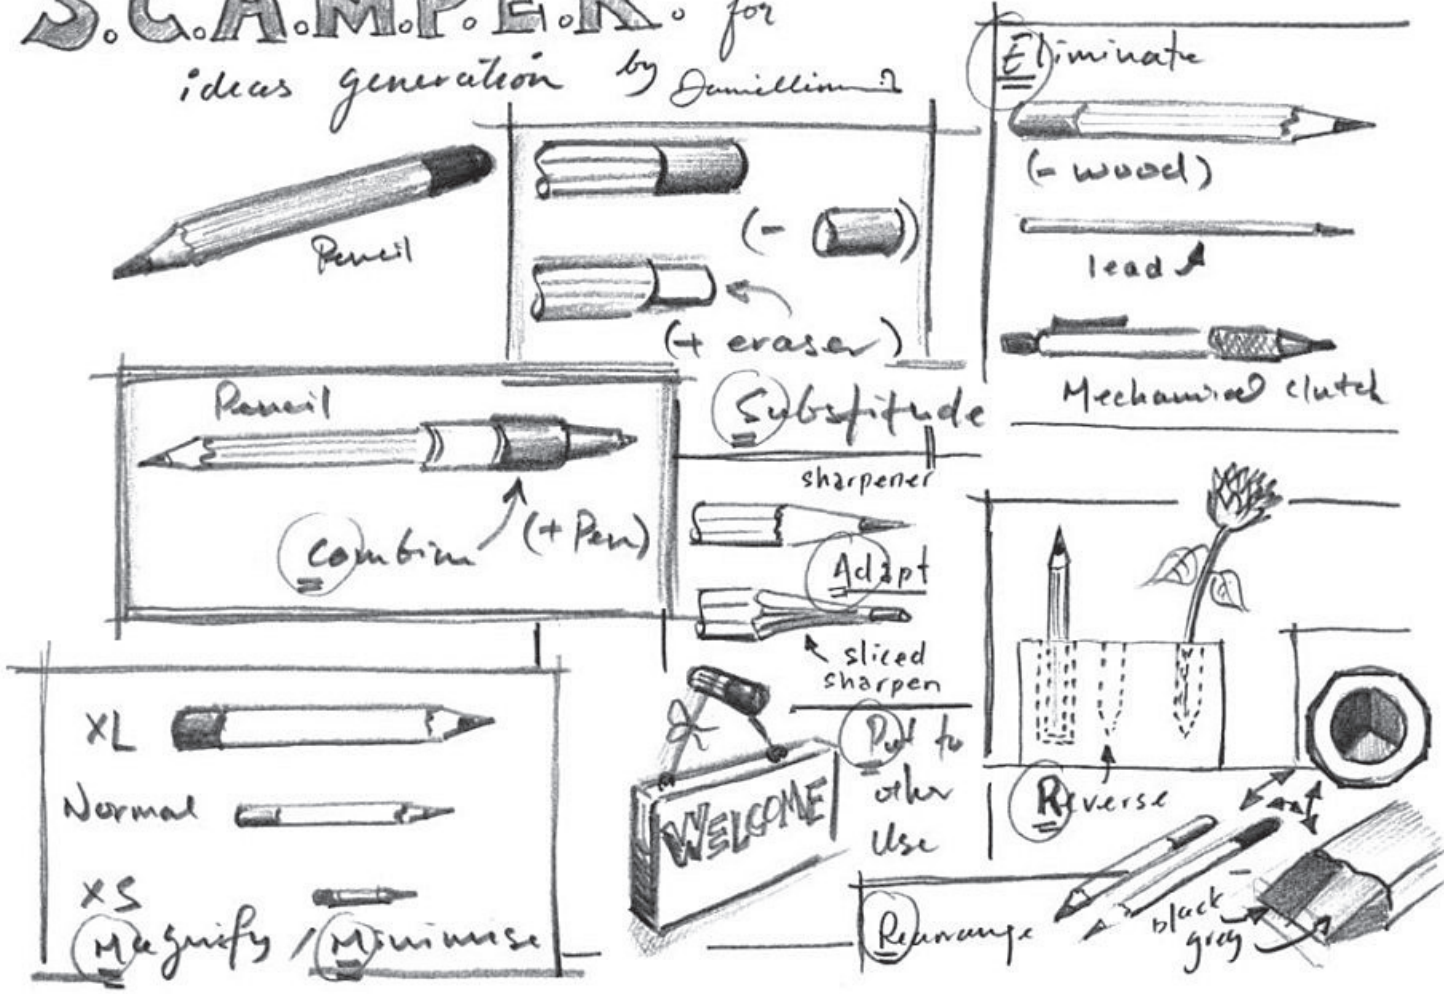 S.C.A.M.P.E.R. for
ideas generation by
Pencil
(-
)
(+ eraser)
Substitude
Eliminate
(- wood)
lead
Mechanical clutch
Pencil
(+ Pen)
Combine
sharpener
Adapt
sliced
sharpen
XL
Normal
XS
Magnify / Minimise
WELCOME
Put to
other
Use
Reverse
Rearrange
black
grey